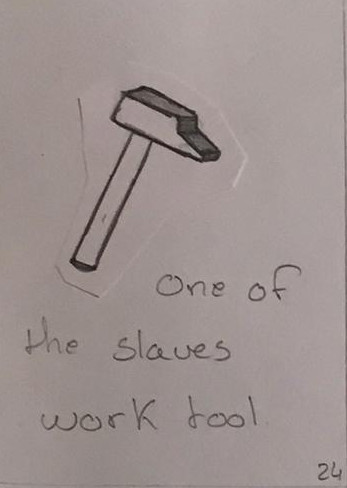 One of
the slaves
work tool.
24